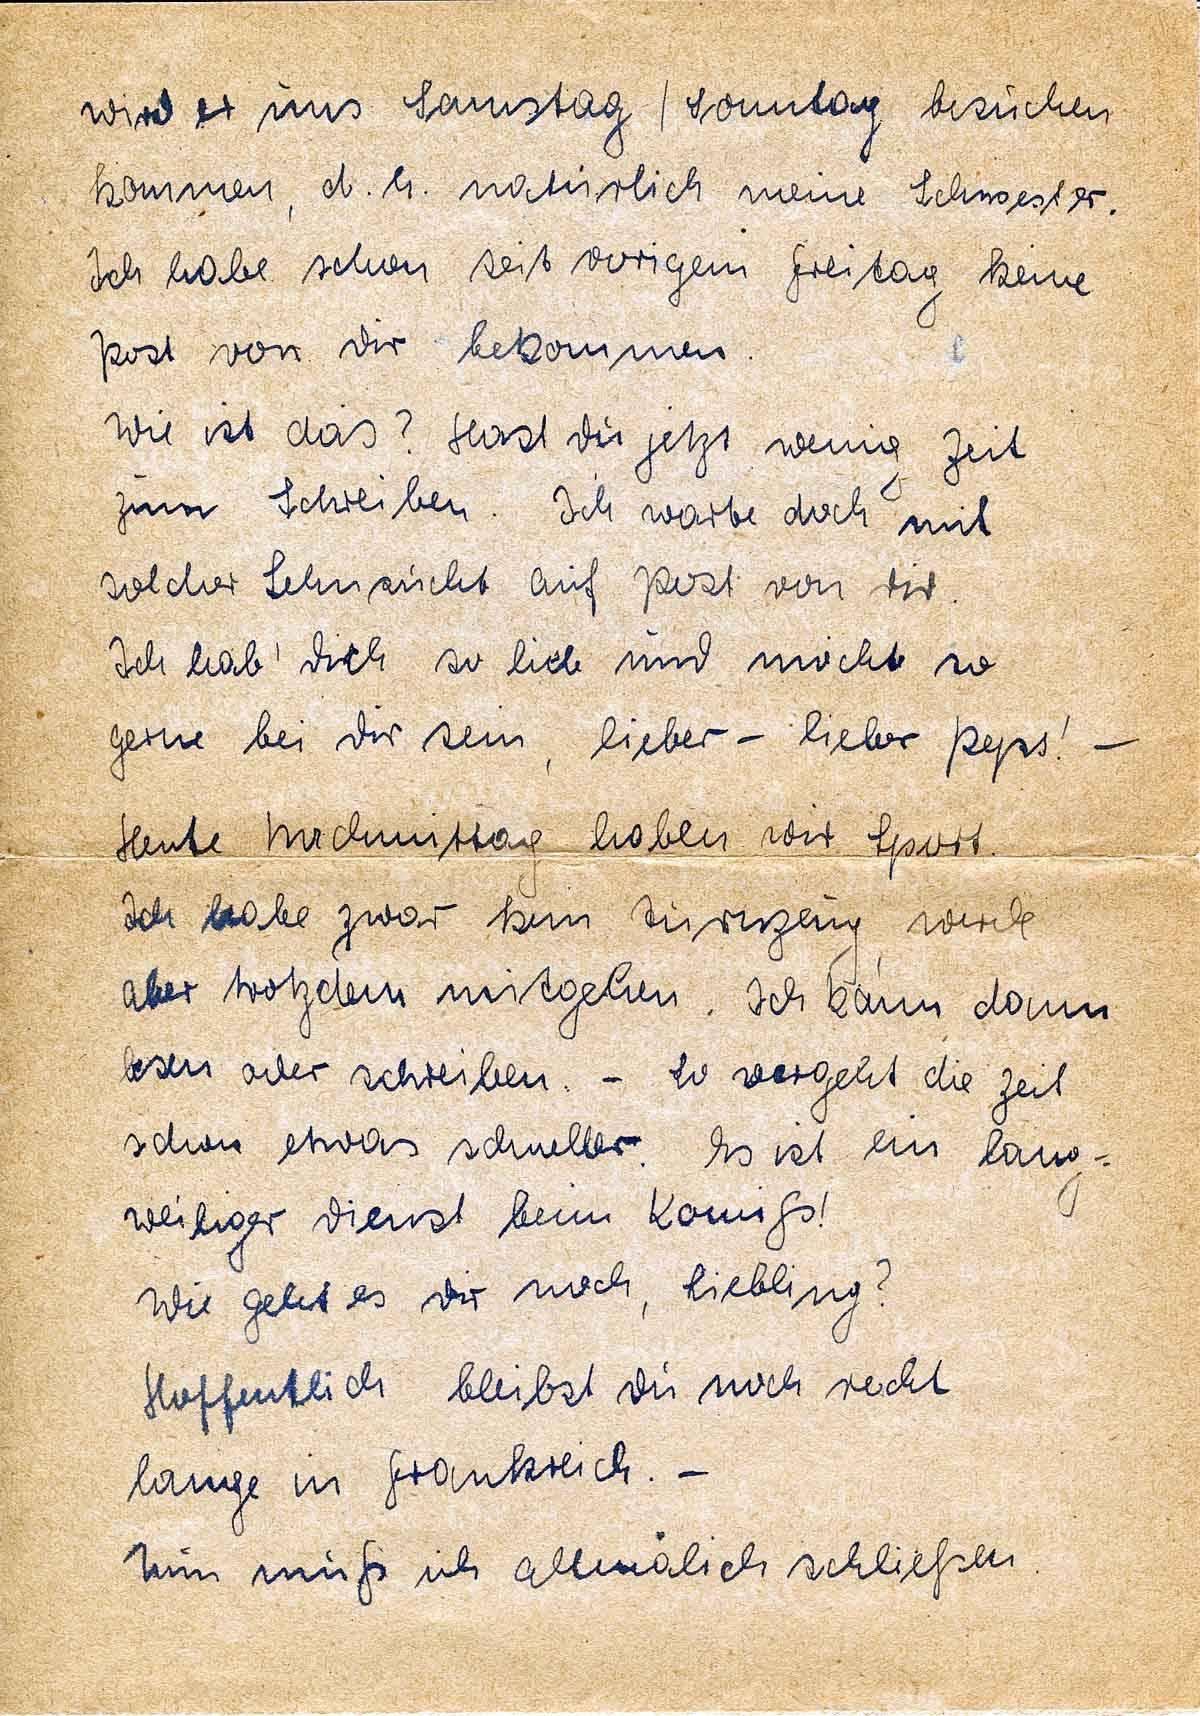 wird er uns Samstag / Sonntag besuchen
kommen, d. h. natürlich meine Schwester.
Ich habe schon seit vorigem Freitag keine
Post von Dir bekommen.
Wie ist das? Hast Du jetzt wenig Zeit
zum Schreiben. Ich warte doch mit
solcher Sehnsucht auf Post von Dir.
Ich hab' Dich so lieb und möcht so
gerne bei Dir sein, lieber – lieber Peps! –
Heute Nachmittag haben wir Sport.
Ich habe zwar kein Turnzeug werde
aber trotzdem mitgehen. Ich kann dann
lesen oder schreiben. – So vergeht die Zeit
schon etwas schneller. Es ist ein lang-
weiliger Dienst beim Komiß!
Wie geht es Dir noch, Liebling?
Hoffentlich bleibst Du noch recht
lange in Frankreich. –
Nun muß ich allmälich schließen.